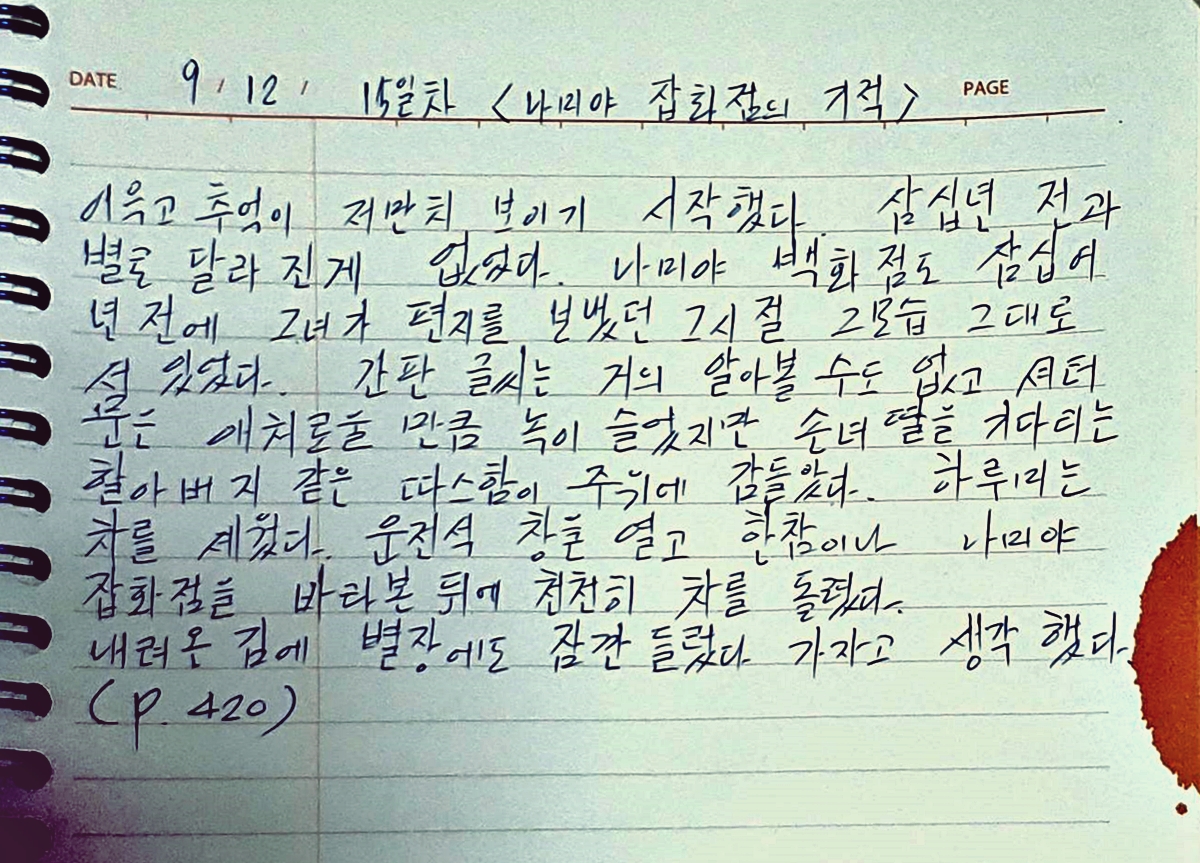 DATE 9 / 12 / 15일차 <나미야 잡화점의 기적> PAGE
이윽고 추억이 저만치 보이기 시작했다. 삼십년 전과
별로 달라 진게 없었다. 나미야 백화점도 삼십여
년 전에 그녀가 편지를 보냈던 그시절 그모습 그대로
서 있었다. 간판 글씨는 거의 알아볼 수도 없고 셔터
문은 애처로울 만큼 녹이 슬었지만 손녀 딸을 기다리는
할아버지 같은 따스함이 주위에 감돌았다. 하루미는
차를 세웠다. 운전석 창문을 열고 한참이나 나미야
잡화점을 바라본 뒤에 천천히 차를 돌렸다.
내려온 김에 별장에도 잠깐 들렀다 가자고 생각 했다.
(p. 420)